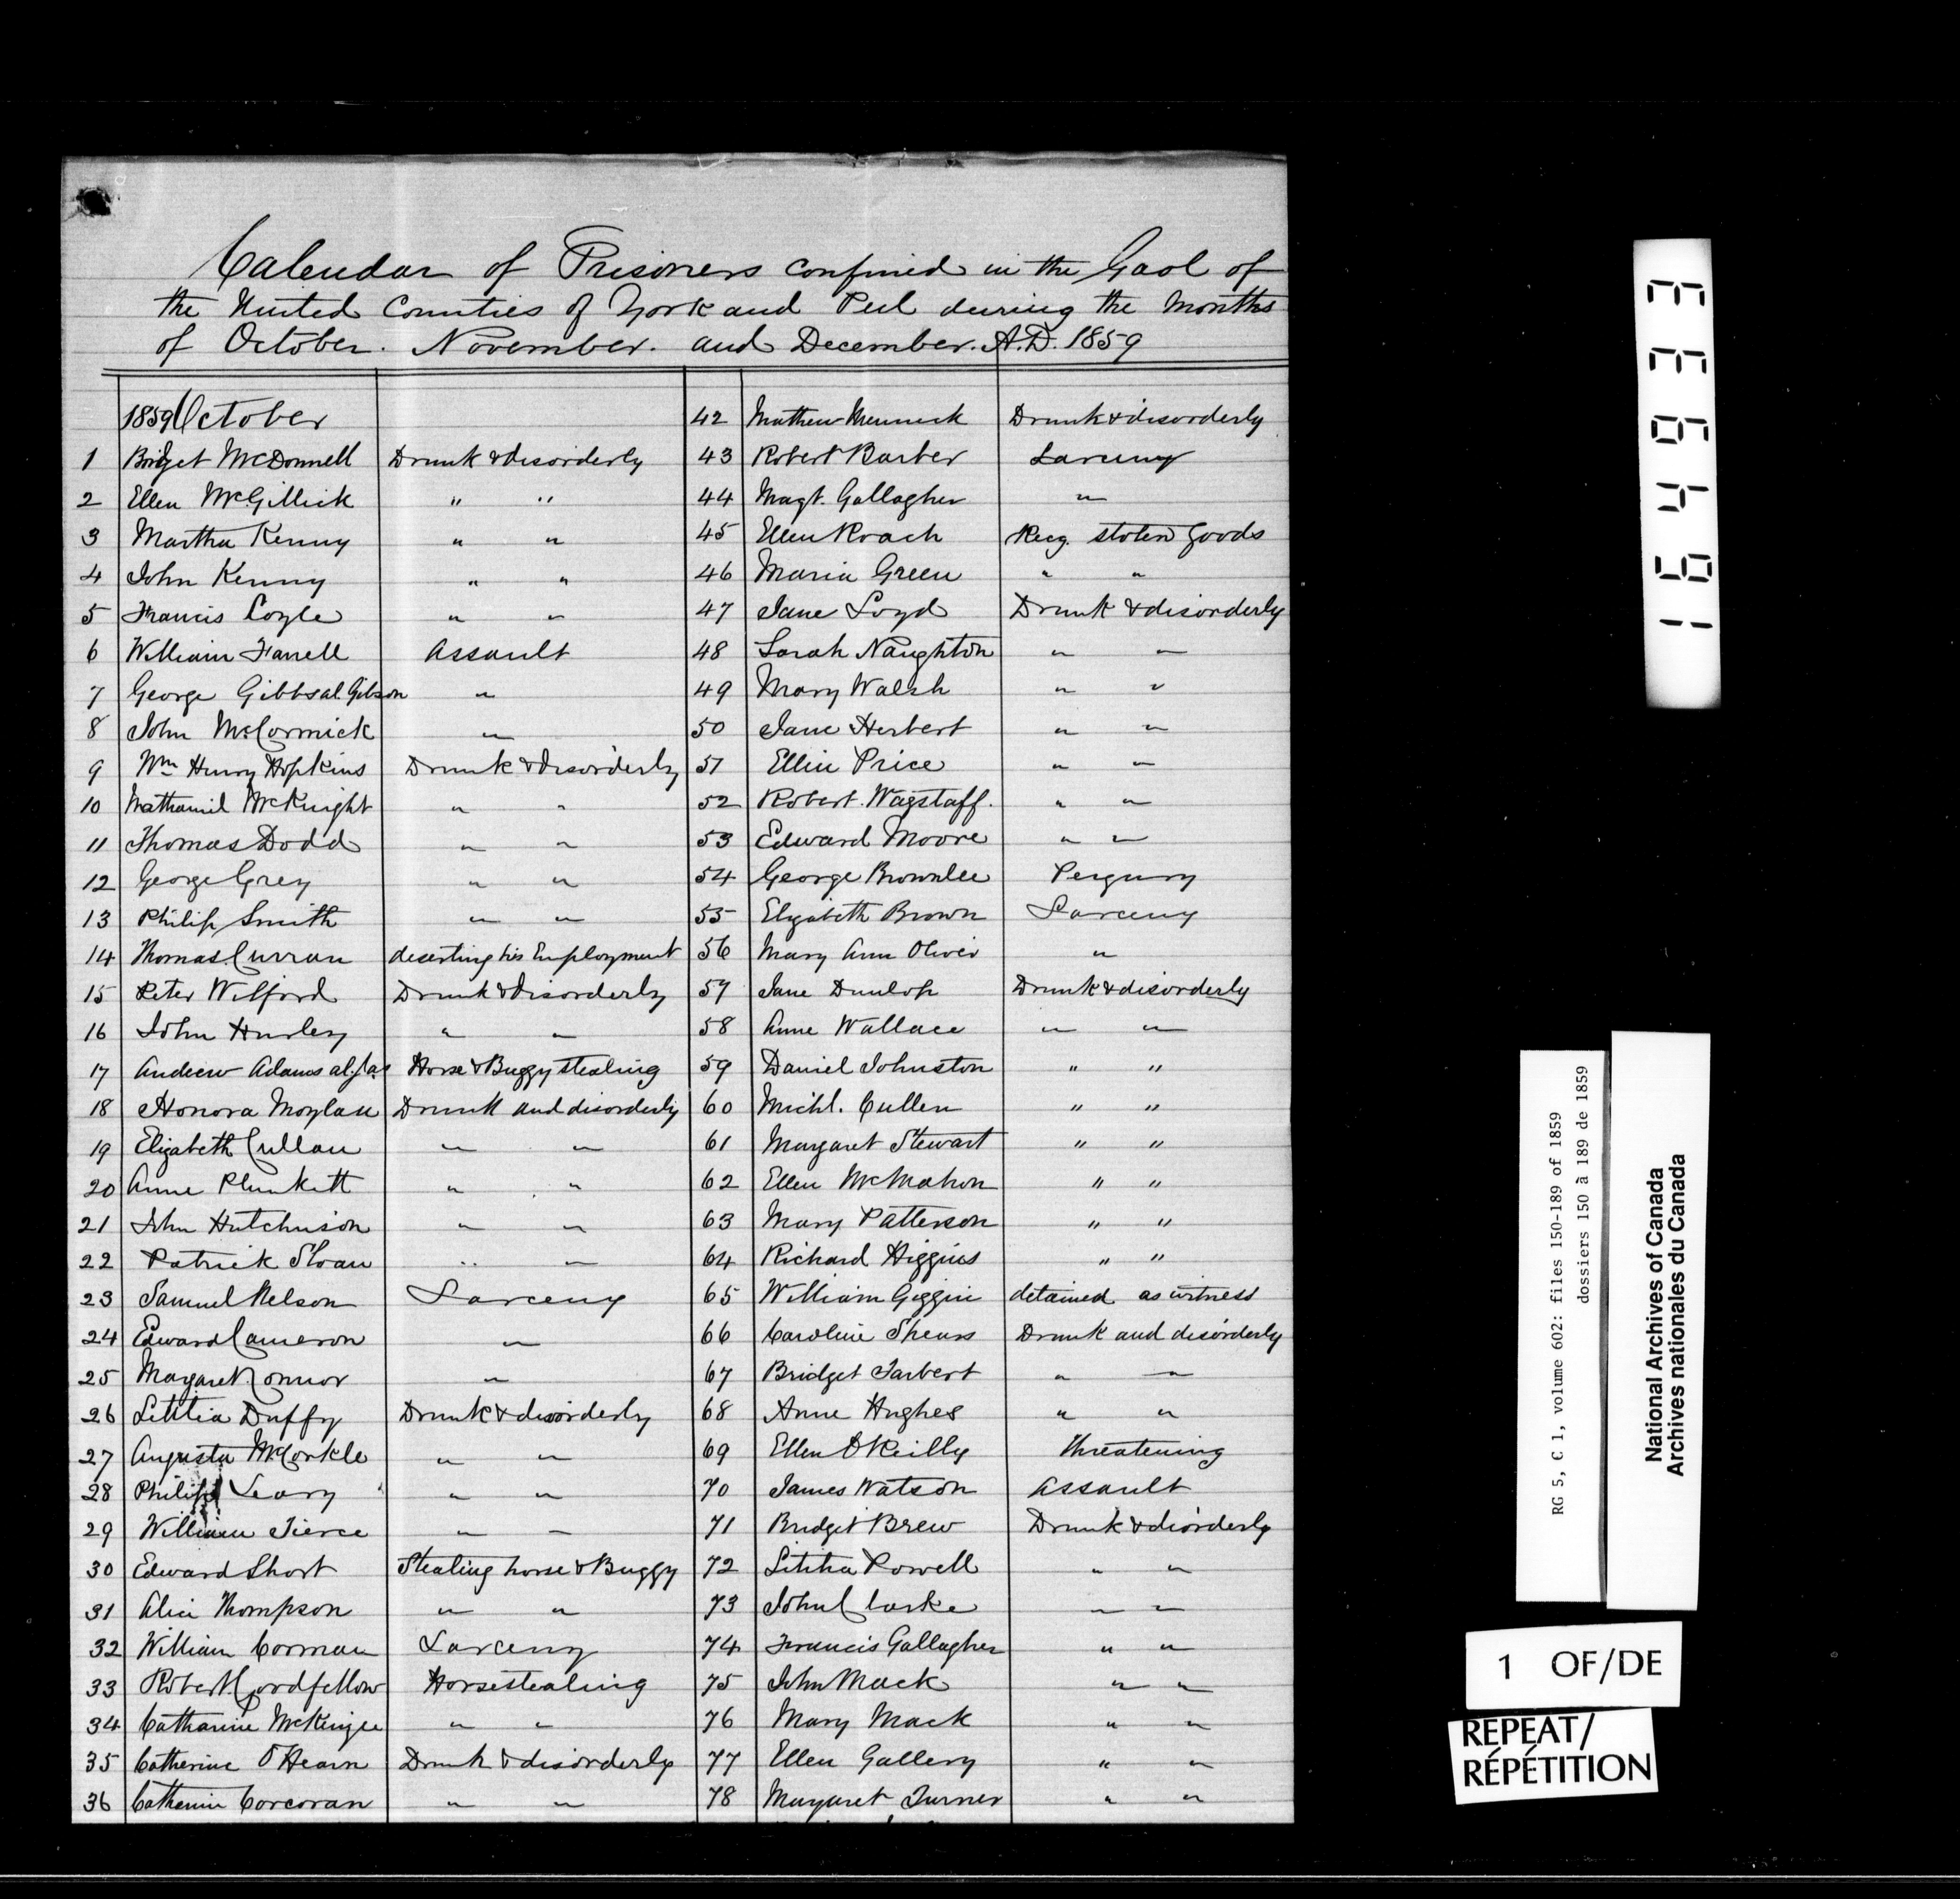 Calendar of Prisoners confined in the Gaol of
the United Counties of York and Peel during the Months
of October. November. and December. A.D. 1859
1859 October
1 Bridget McDonnell Drunk & disorderly
2 Ellen McGillick " "
3 Martha Kenny " "
4 John Kenny " "
5 Francis Coyle " "
6 William Farrell Assault
7 George Gibbs al. Gibson "
8 John McCormick "
9 Wm Henry Hopkins Drunk & disorderly
10 Nathaniel McKnight " "
11 Thomas Dodd " "
12 George Grey " "
13 Philip Smith " "
14 Thomas Curran deserting his Employment
15 Peter Wilford Drunk & disorderly
16 John Hurley " "
17 Andrew Adams al. Jas Horse & Buggy stealing
18 Honora Moylan Drunk and disorderly
19 Elizabeth Cullan " "
20 Anne Plunkett " "
21 John Hutchinson " "
22 Patrick Sloan " "
23 Samuel Nelson Larceny
24 Edward Cameron "
25 Margaret Connor "
26 Letitia Duffy Drunk & disorderly
27 Augusta McCorkle " "
28 Philip Leary " "
29 William Tierce " "
30 Edward Short Stealing horse & Buggy
31 Alice Thompson " "
32 William Corman Larceny
33 Robert Goodfellow Horsestealing
34 Catharine McKenzie " "
35 Catherine O'Hearn Drunk & disorderly
36 Catherine Corcoran " "
42 Mathew Drunk & disorderly
43 Robert Barber Larceny
44 Magt. Gallagher "
45 Ellen Roach Recg. stolen goods
46 Maria Green " "
47 Jane Loyd Drunk & disorderly
48 Sarah Naughton " "
49 Mary Walsh " "
50 Jane Herbert " "
51 Ellin Price " "
52 Robert Wagstaff. " "
53 Edward Moore " "
54 George Brownlee Pergury
55 Elizabeth Brown Larceny
56 Mary Ann Oliver "
57 Jane Dunlop Drunk & disorderly
58 Anne Wallace " "
59 Daniel Johnston " "
60 Michl. Cullen " "
61 Margaret Stewart " "
62 Ellen McMahon " "
63 Mary Patterson " "
64 Richard Higgins " "
65 William Giggin detained as witness
66 Caroline Spears Drunk and disorderly
67 Bridget Tarbert " "
68 Anne Hughes " "
69 Ellen O'Reilly Threatening
70 James Watson Assault
71 Bridget Brew Drunk & disorderly
72 Letitia Powell " "
73 John Clarke " "
74 Francis Gallagher " "
75 John Mack " "
76 Mary Mack " "
77 Ellen Gallery " "
78 Margaret Turner " "
164933
RG 5, C 1, volume 602: files 150-189 of 1859
dossiers 150 à 189 de 1859
National Archives of Canada
Archives nationales du Canada
1 OF/DE
REPEAT/
RÉPÉTITION